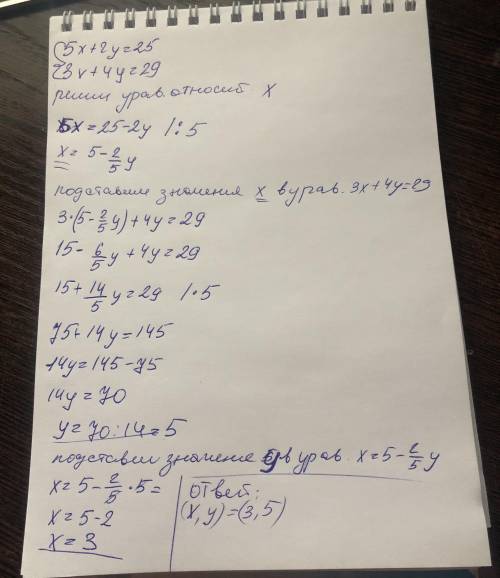 {5x+2y=25
{3x+4y=29
решим урав. относит x
5x=25-2y /:5
x=5-2/5y
подставим значения x в урав. 3x+4y=29
3·(5-2/5y)+4y=29
15-6/5y+4y=29
15+14/5y=29 /·5
75+14y=145
14y=145-75
14y=70
y=70:14=5
подставим значение y в урав. x=5-2/5y
x=5-2/5·5=
x=5-2
x=3
ответ:
(x,y)=(3,5)